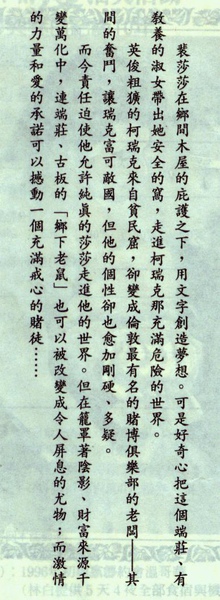 裴莎莎在鄉間木屋的庇護之下，用文字創造夢想。可是好奇心把這個端莊、有
教養的淑女帶出她安全的窩，走進柯瑞克那充滿危險的世界。
英俊粗獷的柯瑞克來自貧民窟，卻變成倫敦最有名的賭博俱樂部的老闆——其
間的奮鬥，讓瑞克富可敵國，但他的個性卻也愈加剛硬、多疑。
而今責任迫使他允許純真的莎莎走進他的世界。但在籠罩著陰影、財富來源千
變萬化中，連端莊、古板的「鄉下老鼠」也可以被改變成令人屏息的尤物；而激情
的力量和愛的承諾可以撼動一個充滿戒心的賭徒……